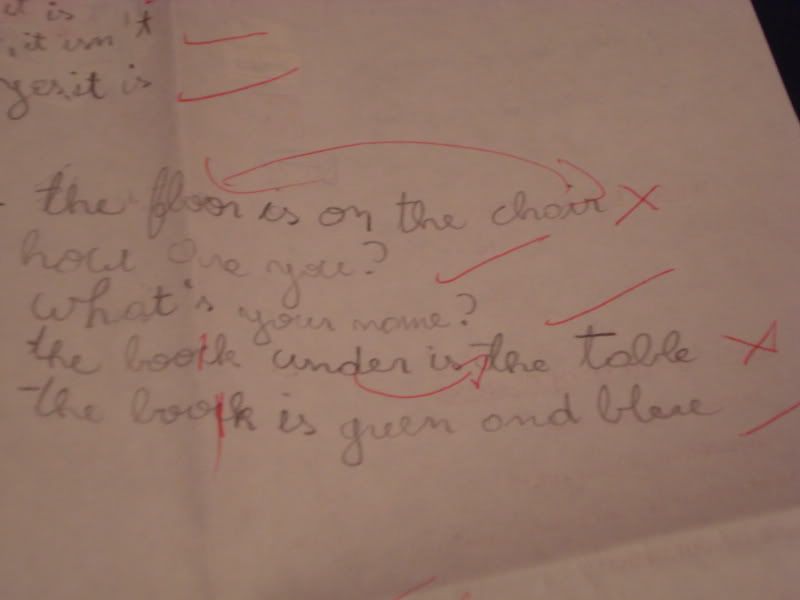 it is
, it isn't
yes, it is
- the floor is on the chair
how are you?
what's your name?
the book under is the table
the book is green and blue